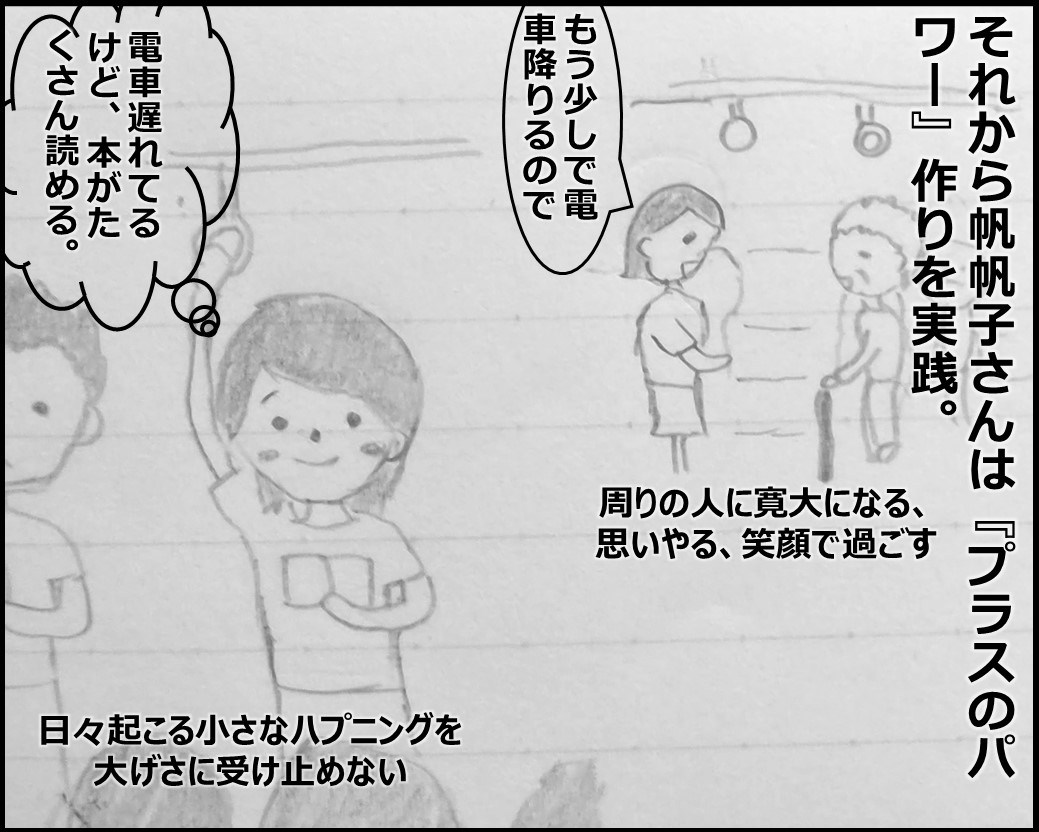 それから帆帆子さんは『プラスのパ
ワー』作りを実践。
もう少しで電
車降りるので
周りの人に寛大になる、
思いやる、笑顔で過ごす
電車遅れてる
けど、本がた
くさん読める。
日々起こる小さなハプニングを
大げさに受け止めない